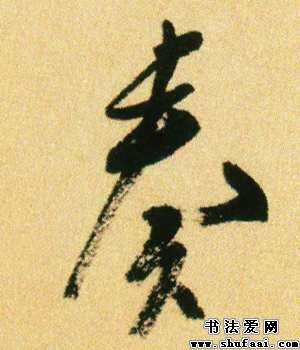 奏
书法爱网
www.shufaai.com